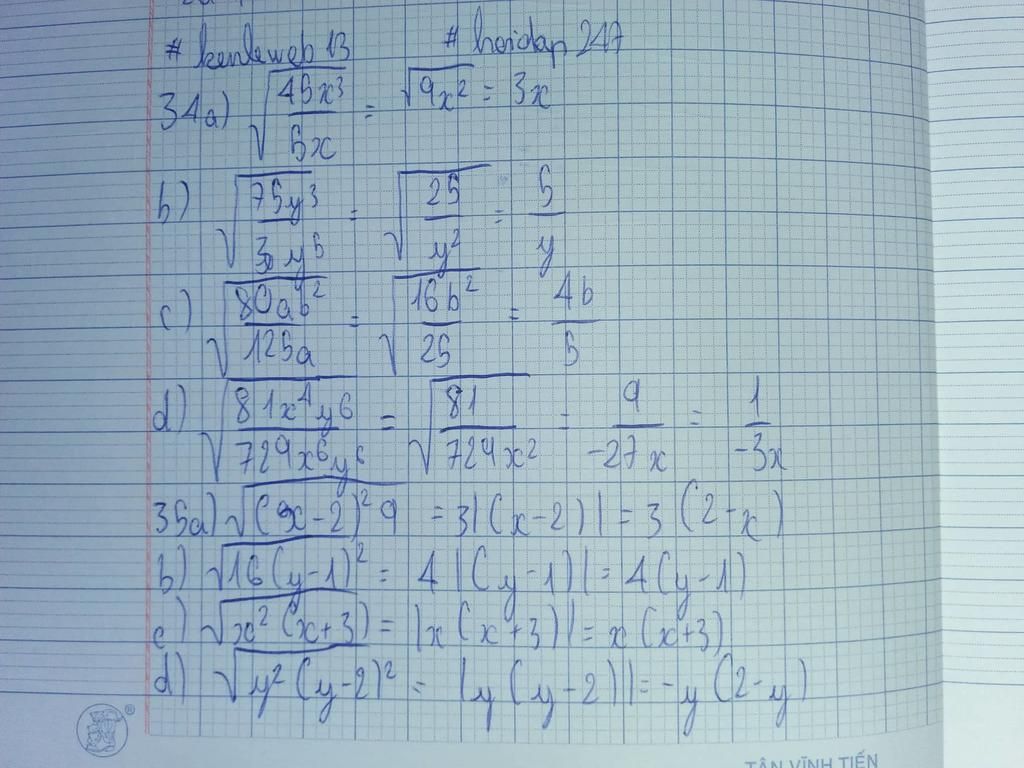 # kenleweb 13 # hoidap 247
34a) √(45x³/5x) = √(9x²) = 3x
b) √(75y³/3y⁵) = √(25/y²) = 5/y
c) √(80ab²/125a) = √(16b²/25) = 4b/5
d) √(81x⁴y⁶/729x⁶y⁶) = √(81/729x²) = 9/-27x = 1/-3x
35a) √((x-2)²9) = 3|(x-2)| = 3(2-x)
b) √(16(y-1)²) = 4|(y-1)| = 4(y-1)
c) √(x²(x+3)) = |x(x+3)| = x(x+3)
d) √(y²(y-2)²) = |y(y-2)| = -y(2-y)
TÂN VĨNH TIẾN